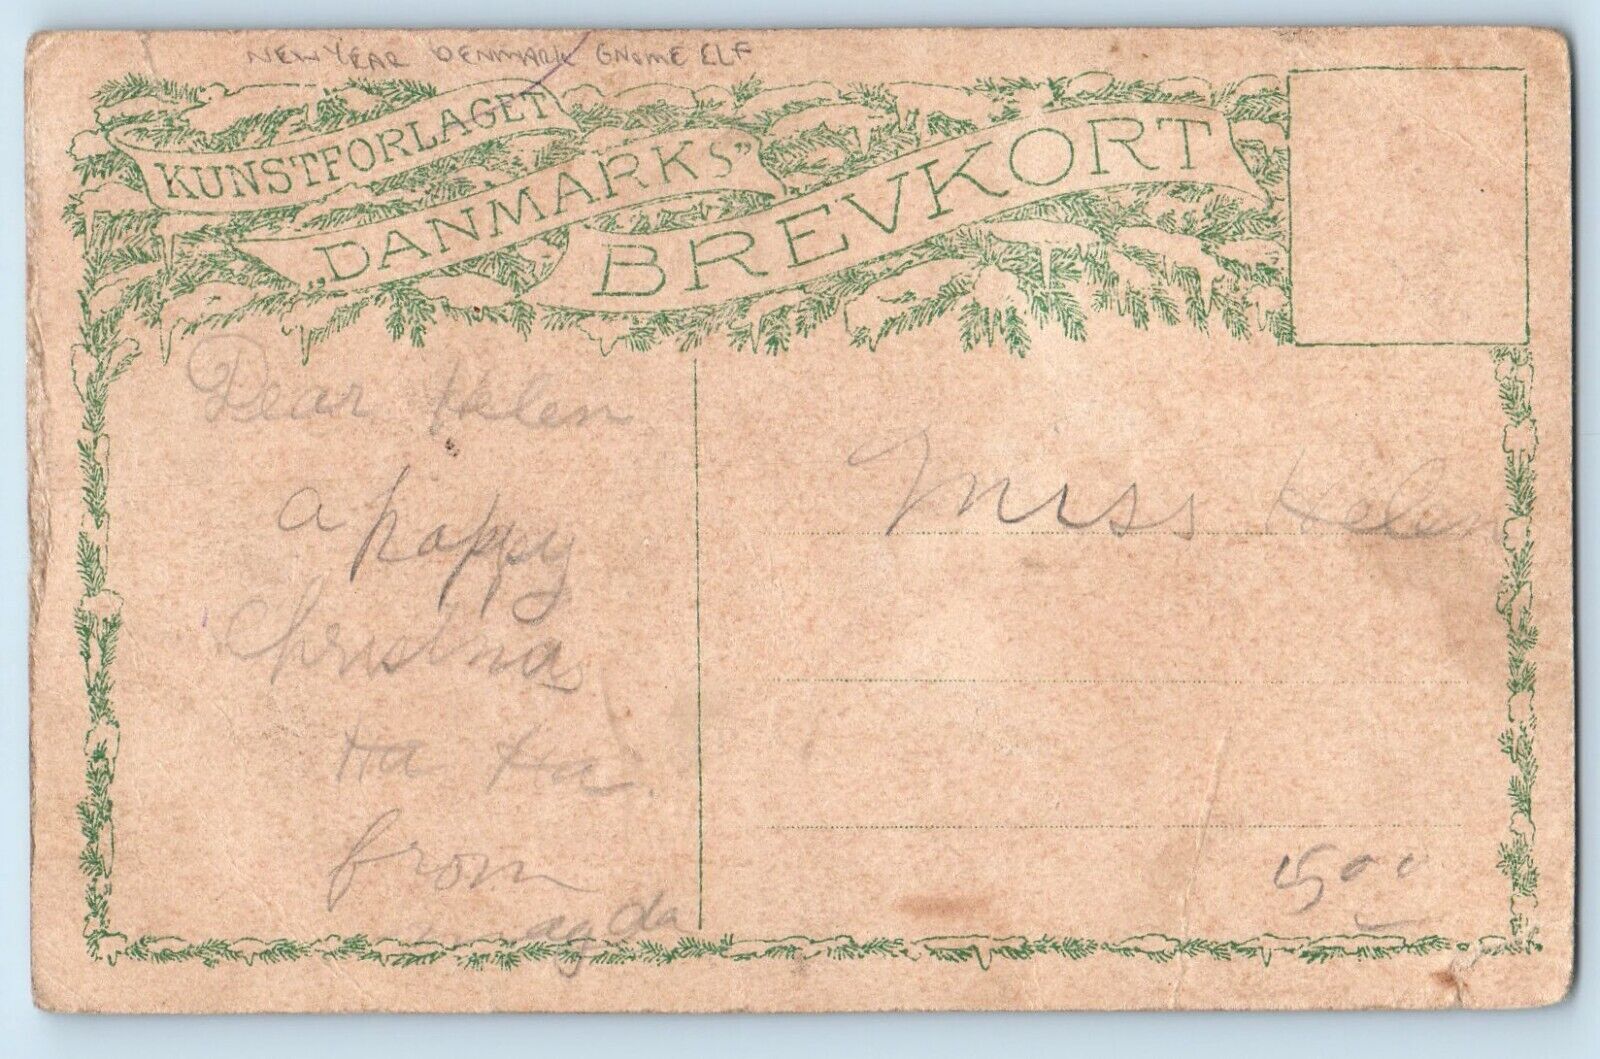 NEW YEAR DENMARK GNOME ELF
KUNSTFORLAGET
„DANMARKS”
BREVKORT
Dear Helen
a happy
Christmas
Ha Ha.
from
magda
Miss Helen
500